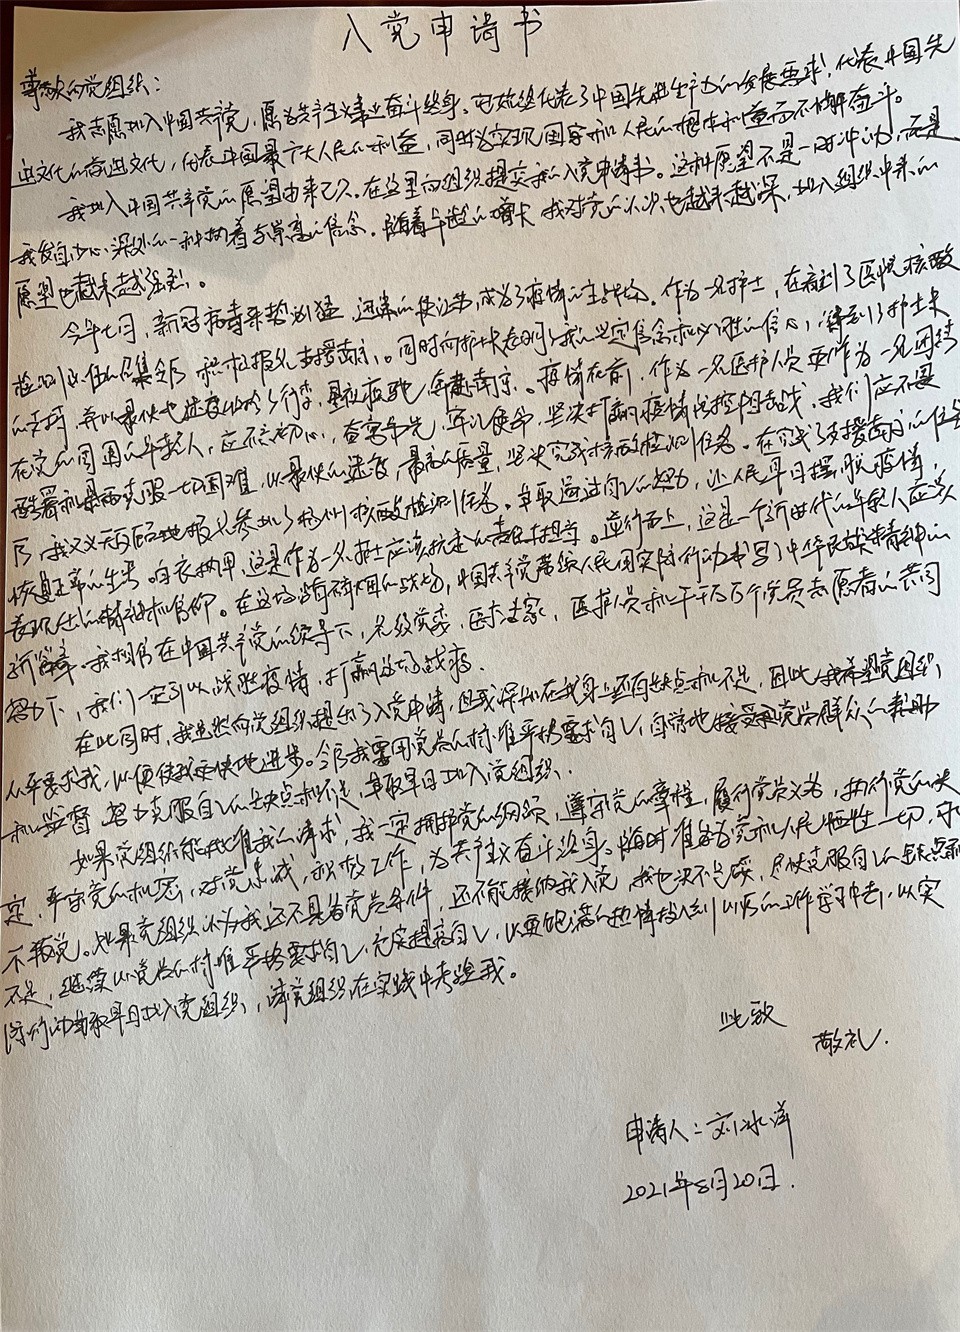 入党申请书
尊敬的党组织：
我志愿加入中国共产党，愿为共产主义事业奋斗终身。它始终代表了中国先进生产力的发展要求，代表中国先
进文化的前进文化，代表中国最广大人民的利益，同时为实现国家和人民的根本利益而不懈奋斗。
我加入中国共产党的愿望由来已久。在这里向组织提交我的入党申请书。这种愿望不是一时冲动，而是
我发自内心深处的一种执着与崇高的信念。随着年龄的增长我对党的认识也越来越深，加入组织中来的
愿望也越来越强烈。
今年七月，新冠病毒来势汹猛，迅速的使江苏，成为了疫情的主战场。作为一名护士，在看到了医院核酸
检测队伍的召集令后积极报名支援南京。同时向护士长表明了我的坚定信念和必胜的信心，得到了护士长
的支持，并以最快地速度收拾了行李，星夜疲驰，奔赴南京。疫情在前，作为一名医护人员更作为一名团结
在党的周围的年轻人，应不忘初心，奋勇争先，牢记使命，坚决打赢疫情防控阻击战，我们应不畏
酷暑和暴雨克服一切困难，以最快的速度，最高的质量，坚决完成核酸检测任务。在完成了支援南京的任务
后，我又义无反顾地报名参加了扬州核酸检测任务。争取通过自己的努力，让人民早日摆脱疫情，
恢复正常的生活。白衣执甲，这是作为一名护士应该抗走的责任与担当。逆行而上，这是一个新时代的年轻人应该
表现出的精神和信仰。在这场没有硝烟的战场，中国共产党带领人民用实际行动书写了中华民族精神的
新篇章。我相信在中国共产党的领导下，各级党委，医护专家，医护人员和千千万万个党员志愿者的共同
努力下，我们一定可以战胜疫情，打赢这场战疫。
在此同时，我虽然向党组织提出了入党申请，但我深知在我身上还有缺点和不足，因此，我希望党组织
从严要求我，以便使我更快地进步。今后我要用党员的标准严格要求自己，自觉地接受党员群众的帮助
和监督，努力克服自己的缺点和不足，争取早日加入党组织。
如果党组织能批准我的请求，我一定拥护党的纲领，遵守党的章程，履行党员义务，执行党的决
定，严守党的机密，对党忠诚，积极工作，为共产主义奋斗终身。随时准备为党和人民牺牲一切，永
不叛党。如果党组织认为我还不具备党员条件，还不能接纳我入党，我也决不气馁，尽快克服自己的缺点和
不足，继续以党员的标准严格要求自己，充实提高自己，以更饱满的热情投入到以后的工作学习中去，以实
际行动争取早日加入党组织，请党组织在实践中考验我。
此致
敬礼.
申请人：刘冰洋
2021年8月20日.